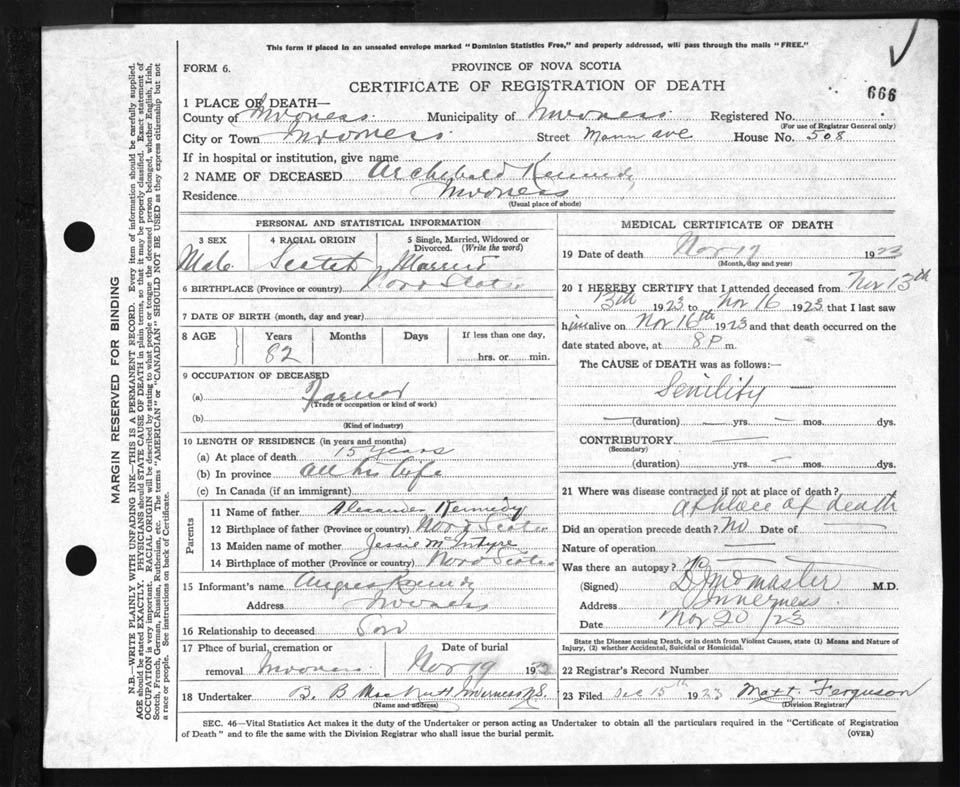 This form if placed in an unsealed envelope marked "Dominion Statistics Free," and properly addressed, will pass through the mails "FREE."
FORM 6.
PROVINCE OF NOVA SCOTIA
CERTIFICATE OF REGISTRATION OF DEATH
666
1 PLACE OF DEATH—
County of Inverness Municipality of Inverness Registered No.
(For use of Registrar General only)
City or Town Inverness Street Mann ave House No. 508
If in hospital or institution, give name
2 NAME OF DECEASED Archibald Kennedy
Residence Inverness
(Usual place of abode)
PERSONAL AND STATISTICAL INFORMATION
3 SEX 4 RACIAL ORIGIN 5 Single, Married, Widowed or Divorced. (Write the word)
Male Scotch Married
6 BIRTHPLACE (Province or country) Nova Scotia
7 DATE OF BIRTH (month, day and year)
8 AGE Years Months Days If less than one day,
82 hrs. or min.
9 OCCUPATION OF DECEASED
(a) Farmer
(Trade or occupation or kind of work)
(b)
(Kind of industry)
10 LENGTH OF RESIDENCE (in years and months)
(a) At place of death 15 years
(b) In province all his life
(c) In Canada (if an immigrant)
Parents
11 Name of father Alexander Kennedy
12 Birthplace of father (Province or country) Nova Scotia
13 Maiden name of mother Jessie McIntyre
14 Birthplace of mother (Province or country) Nova Scotia
15 Informant's name Angus Kennedy
Address Inverness
16 Relationship to deceased Son
17 Place of burial, cremation or Date of burial
removal Inverness Nov 19 192
18 Undertaker B. B MacNutt Inverness N.S.
(Name and address)
MEDICAL CERTIFICATE OF DEATH
19 Date of death Nov 17 1923
(Month, day and year)
20 I HEREBY CERTIFY that I attended deceased from Nov 13th
13th 1923 to Nov 16 1923 that I last saw
him alive on Nov 16th 1923 and that death occurred on the
date stated above, at 8 P m.
The CAUSE of DEATH was as follows:—
Senility —
— (duration) — yrs. — mos. dys.
CONTRIBUTORY —
(Secondary)
(duration) yrs. — mos. dys.
21 Where was disease contracted if not at place of death?
at place of death
Did an operation precede death? no Date of —
Nature of operation —
Was there an autopsy?
(Signed) M.D.
Address Inverness
Date Nov 20 /23
State the Disease causing Death, or in death from Violent Causes, state (1) Means and Nature of
Injury, (2) whether Accidental, Suicidal or Homicidal.
22 Registrar's Record Number
23 Filed Dec 15th 1923 Matt. Ferguson
(Division Registrar)
SEC. 46—Vital Statistics Act makes it the duty of the Undertaker or person acting as Undertaker to obtain all the particulars required in the "Certificate of Registration
of Death" and to file the same with the Division Registrar who shall issue the burial permit.
(OVER)
MARGIN RESERVED FOR BINDING
N.B.—WRITE PLAINLY WITH UNFADING INK—THIS IS A PERMANENT RECORD. Every item of information should be carefully supplied.
AGE should be stated EXACTLY. PHYSICIANS should STATE CAUSE OF DEATH in plain terms, so that it may be properly classified. Exact statement of
OCCUPATION is very important. RACIAL ORIGIN will be described by stating to what people or tongue the deceased person belonged, whether English, Irish,
Scotch, French, German, Russian, Ruthenian, etc. The terms "AMERICAN" or "CANADIAN" SHOULD NOT BE USED as they express citizenship but not
a race or people. See instructions on back of Certificate.